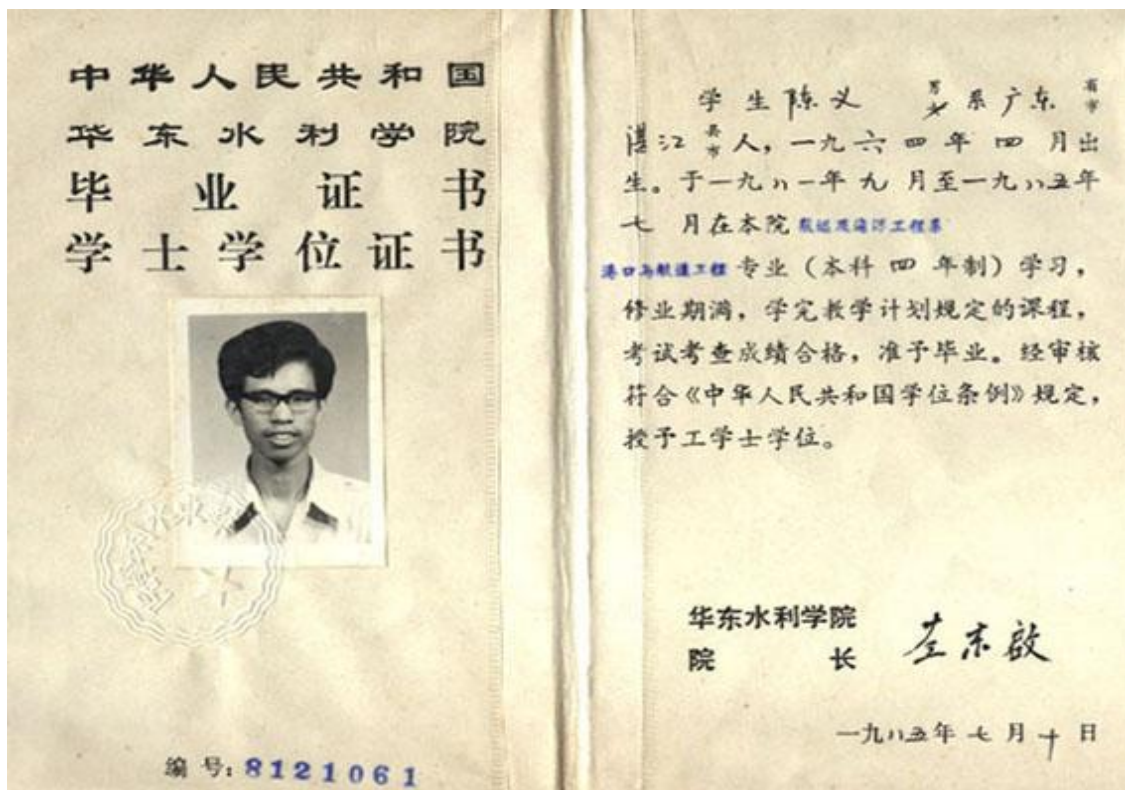 中华人民共和国
华东水利学院
毕业证书
学士学位证书
编号：8121061
学生陈义 男女 系广东 省市
湛江 县市 人，一九六四年四月出
生。于一九八一年九月至一九八五年
七月在本院航运及海洋工程系
港口与航道工程专业（本科四年制）学习，
修业期满，学完教学计划规定的课程，
考试考查成绩合格，准予毕业。经审核
符合《中华人民共和国学位条例》规定，
授予工学士学位。
华东水利学院
院长 左东啟
一九八五年七月十日